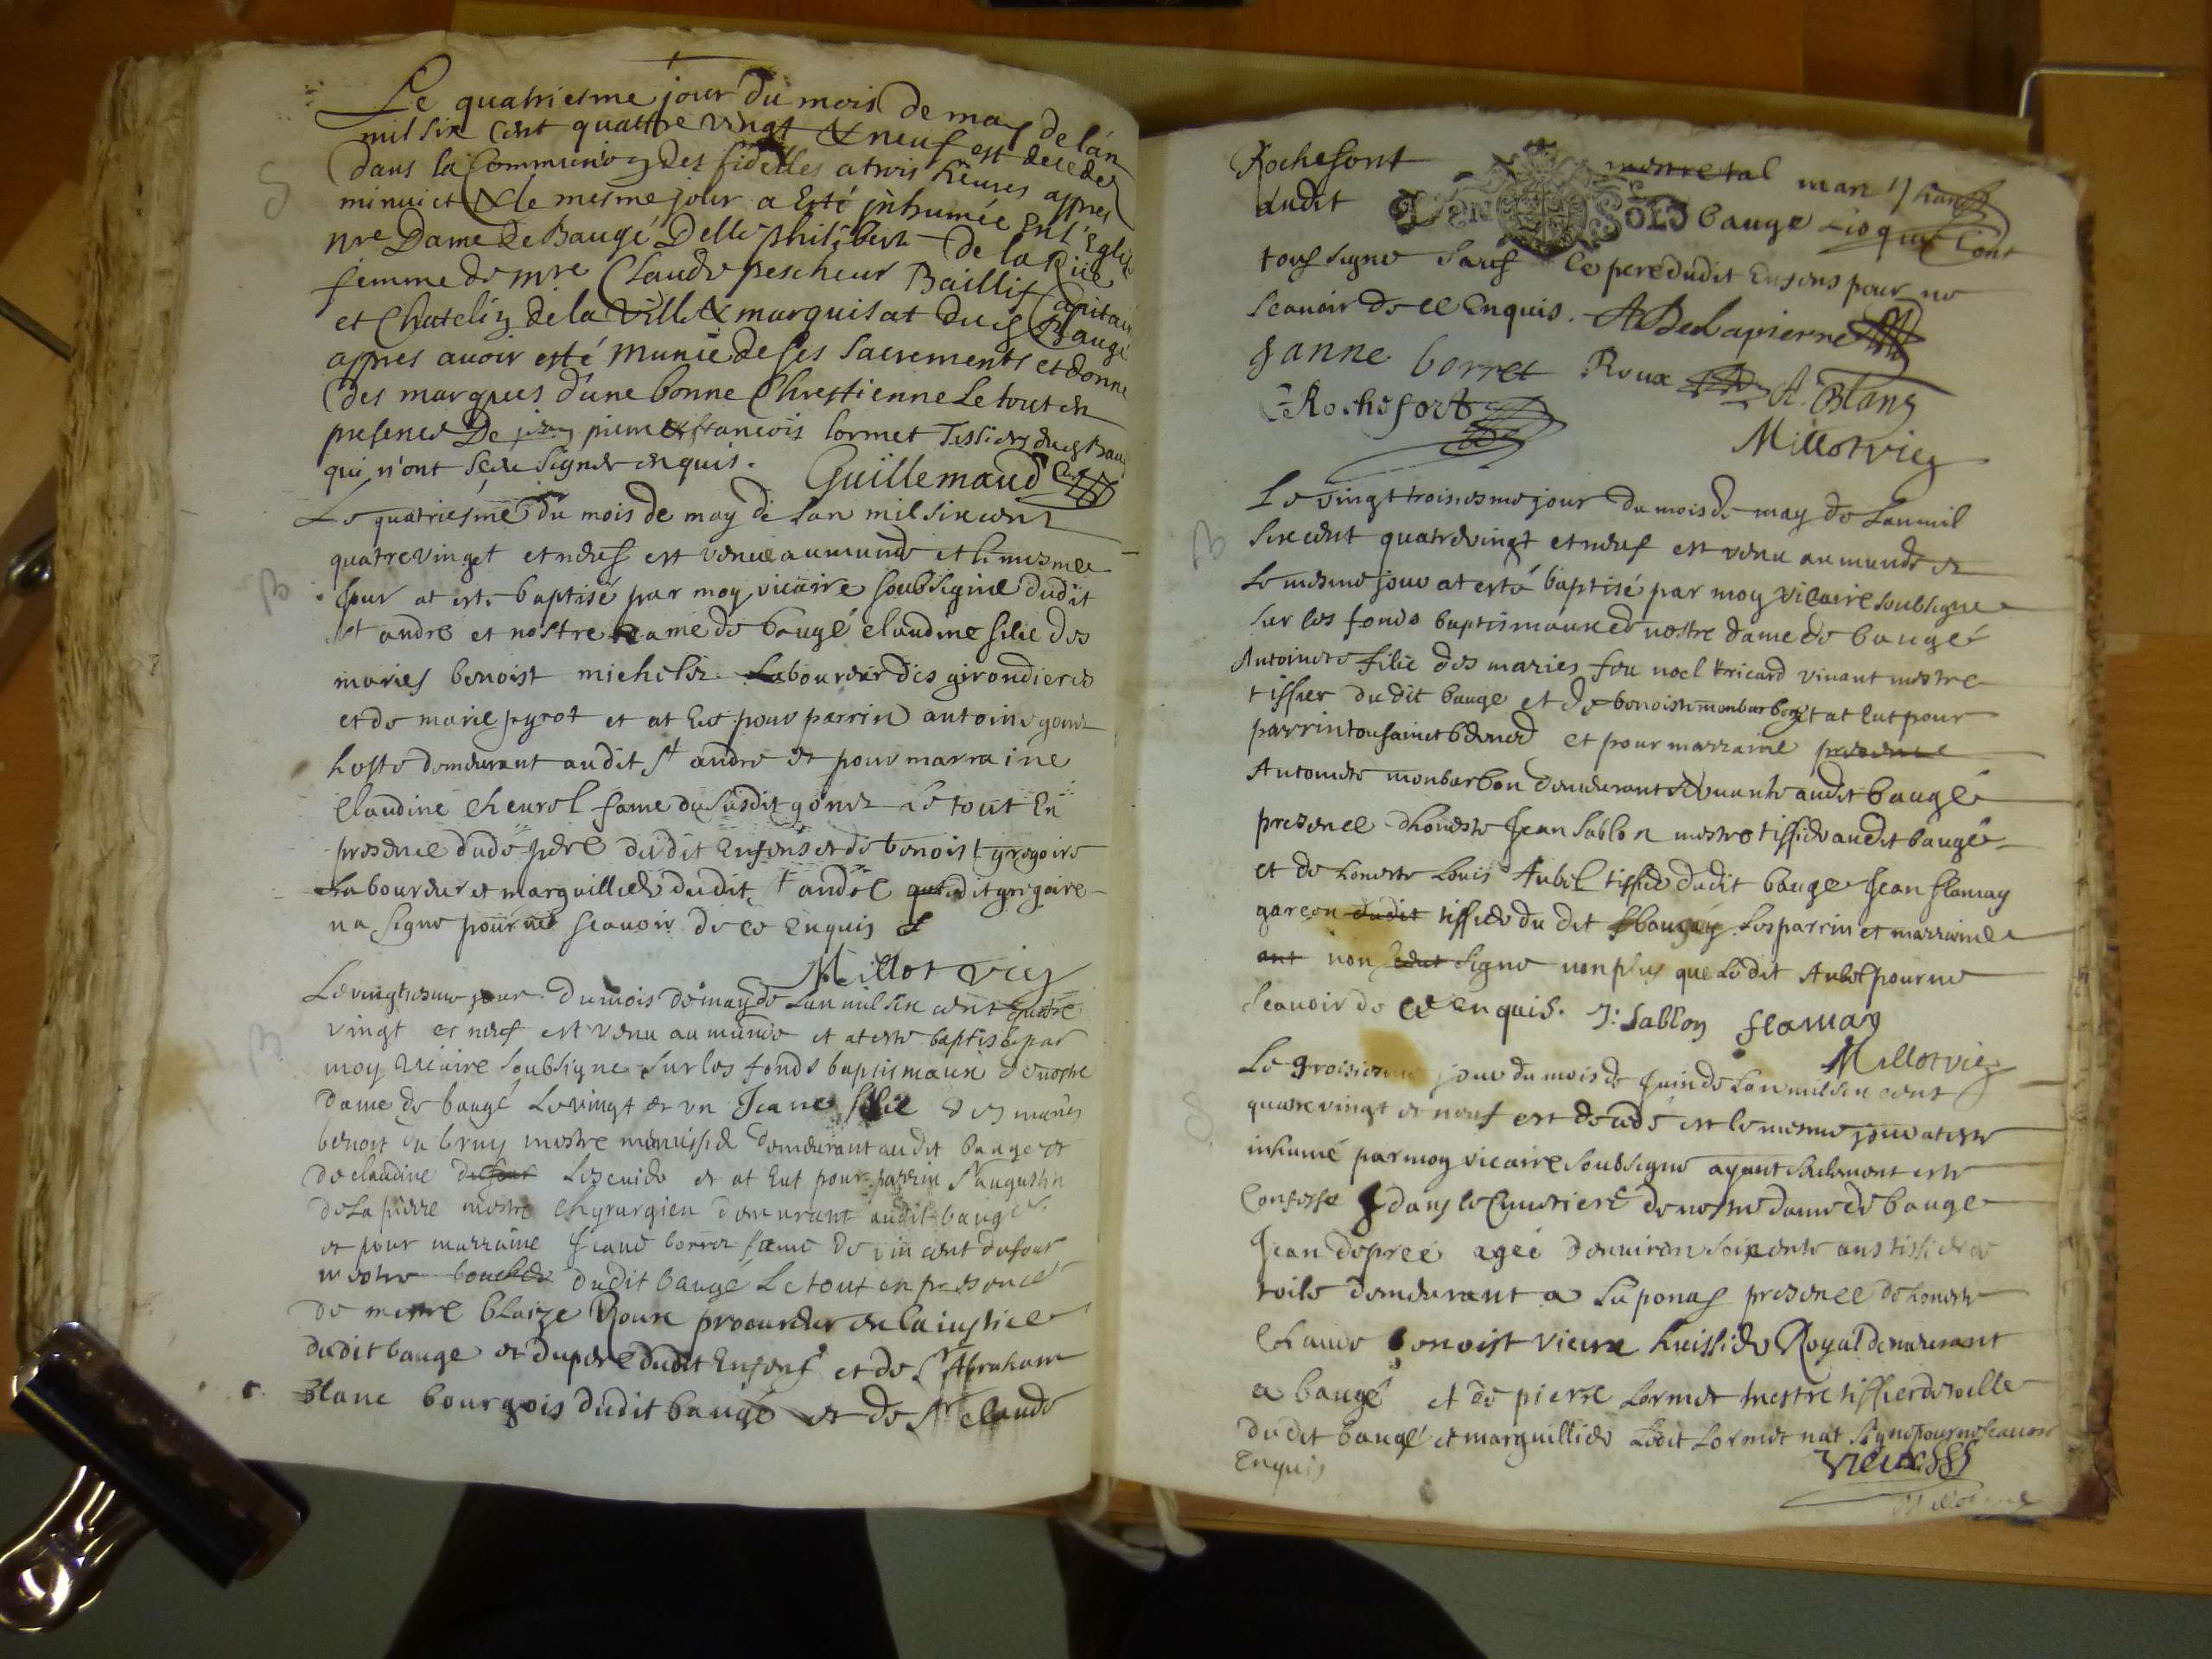 Le quatriesme jour du mois de may de lán
mil six cent quattre vingt & neuf est decedez
dans la Communion des fidelles a trois heures appres
minuict & le mesme jour a Esté inhumée En l'Eglise
nre Dame de Baugé Delle philiberte de la Rüe
femme de mre Claude pescheur Baillif Capitai
et Chatelin de la Ville & marquisat dud Baugé
appres auoir esté munie de ses sacrements et donne
des marques d'une bonne Chrestienne Le tout en
presence De pierre & francois lormet Tissiers dud Baug
qui n'ont sceu signer enquis. Guillemaud
Le quatriesme du mois de may de lan mil six cent
quatre vinget et neuf est venue au munde et le mesme
Jour at esté baptisé par moy vicaire soubsigné dudit
st andre et nostre dame de baugé claudine filie des
maries benoist michelet Laboureur des girondieres
et de marie pyrot et at Eut pour parrin antoine gonet
hoste demeurant audit st andre et pour marraine
Claudine cheurel fame du susdit gonet Le tout En
presence dude pere dudit Enfens et de benoist gregoire
Laboureur et marguillier dudit st andre dit gregoire
na signe pour ne scauoir de ce Enquis
Millot vic
Le vingtiesme jour du mois de may de Lan mil six cent quatre
vingt et neuf est venu au munde et at este baptisé par
moy vicaire soubsigne sur les fonds baptismaux de nostre
Dame de baugé Le vingt et vn Jeane filie des maries
benoit la bruy mestre menissier demeurant audit bauge et
de claudine dufour Lescuide et at Eut pour parrin sr augustin
de La pierre mestre chyrurgien demurant audit baugé
et pour marraine Jeane borret fame de vincent dufour
mestre boucher dudit baugé Le tout en presence
de mestre blaize Roux procureur en la iustice
dudit bauge et du pere dudit Enfens et de sr Abraham
Blanc bourgois dudit baugé et de sr claude
Rochefort mestre tal marchand
audit DEN SOLS bauge Lesquel sont
tous signe sauf le pere dudit Enfens pour ne
scauoir de ce Enquis. A Delapierre
Janne borret Roux A. Blanc
C Rochefort
Millot vic
Le vingt troisiesme jour du mois de may de Lan mil
six cent quatre vingt et neuf est venu au munde et
Le mesme jour at esté baptisé par moy vicaire soubsigne
sur les fonds baptismaux de nostre dame de baugé
Antoinete filie des maries feu noel tricard viuant mestre
tissier du dit bauge et de benoiste monbarbon et at Eut pour
parrin tousainct benoid et pour marraine presence
Antoinete monbarbon demeurant audit baugé
presence dhoneste Jean Sablon mestre tissier audit baugé
et de honeste Louis Aubel tissier dudit bauge Jean flamay
garçon dudit tissier du dit baugey Les parrin et marraine
ont non signe non plus que Ledit Aubel pour ne
scauoir de ce enquis. J: Sablon flamay
Millot vic
Le troisiesme jour du mois de Juin de Lan mil six cent
quatre vingt et neuf est decedé et le mesme jour at este
inhumé par moy vicaire soubsigne ayant seulement este
Confesse dans le Cimetiere de nostre dame de bauge
Jean depree agée denuiron soixente ans tissier de
toile demeurant a Luponas presence de honeste
Claude benoist vieux huissier Royal demeurant
a baugé et de pierre Lormet mestre tissier de toille
dudit baugé et marguillier Ledit Lormet nat signe pour ne scauoir
Enquis
Vieux
Millot vic